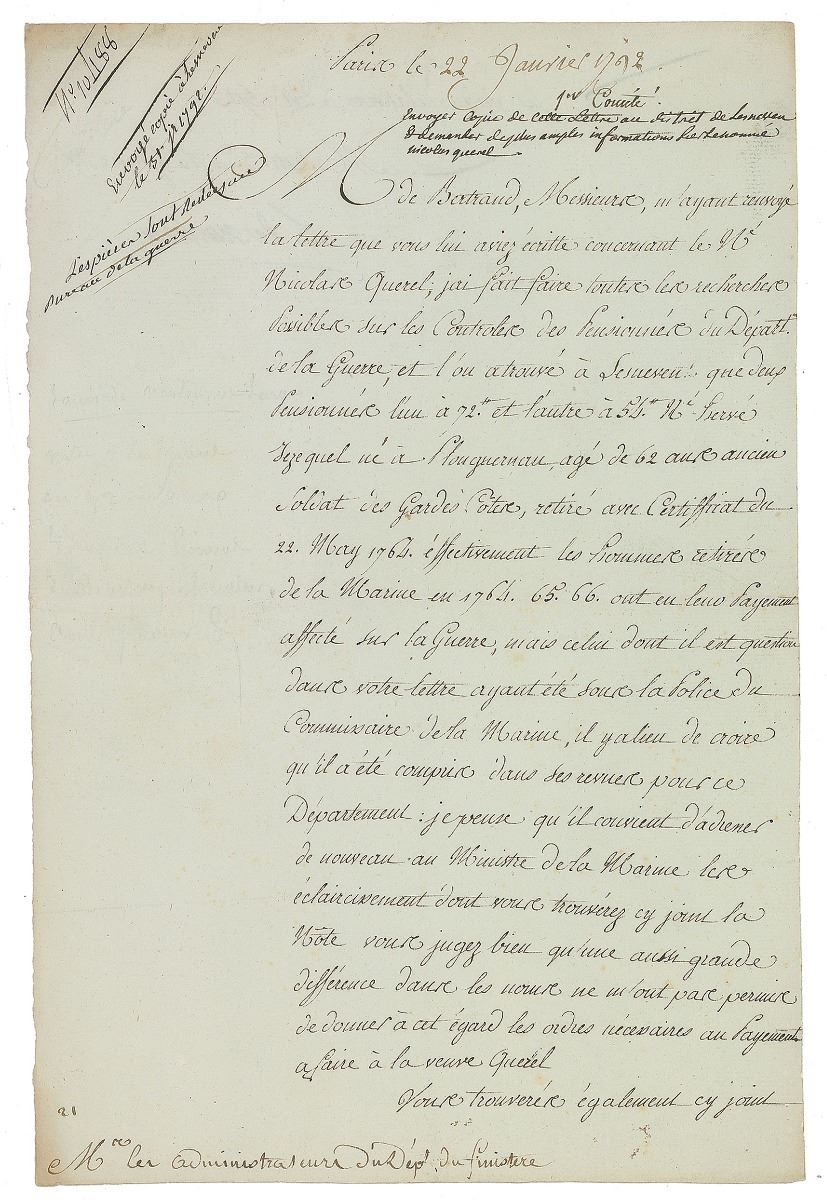 N.º 10488
Envoyé copie à Lesneven
le 31 Jr 1792.
Les pièces sont restées au
Bureau de la guerre
Paris le 22 Janvier 1792.
1er Comité.
Envoyer copie de cette Lettre au district de Lesneven
& demander de plus amples informations sur le nommé
nicolas querel
M de Bertrand, Messieurs, m'ayant renvoyé
la lettre que vous lui aviez écritte concernant le Né
Nicolas Querel; j'ai fait faire toutes les recherches
Possibles sur les Controles des Pensionnés du Départt
de la Guerre, et l'on a trouvé à Lesneven que deux
Pensionnés l'un à 72.tt et l'autre à 54.tt Né Hervé
Jezequel né à Plouguernau, agé de 62 ans ancien
Soldat des Gardes Côtes, retiré avec Certifficat du
22. May 1764. éffectivement les hommes retirés
de la Marine en 1764. 65. 66. ont eu leur Payement
affecté sur la Guerre, mais celui dont il est question
dans votre lettre ayant été sous la Police du
Commissaire de la Marine, il y a lieu de croire
qu'il a été compris dans ses revues pour ce
Département : je pense qu'il convient d'adresser
de nouveau au Ministre de la Marine les
éclaircissement dont vous trouvérez cy joint la
Nôte vous jugez bien qu'une aussi grande
différence dans les noms ne m'ont pas permis
de donner à cet égard les ordres nécessaires au Payement
a faire à la veuve Querel
Vous trouverés également cy joint
21
Mrs les administrateurs du Dépt du finistere